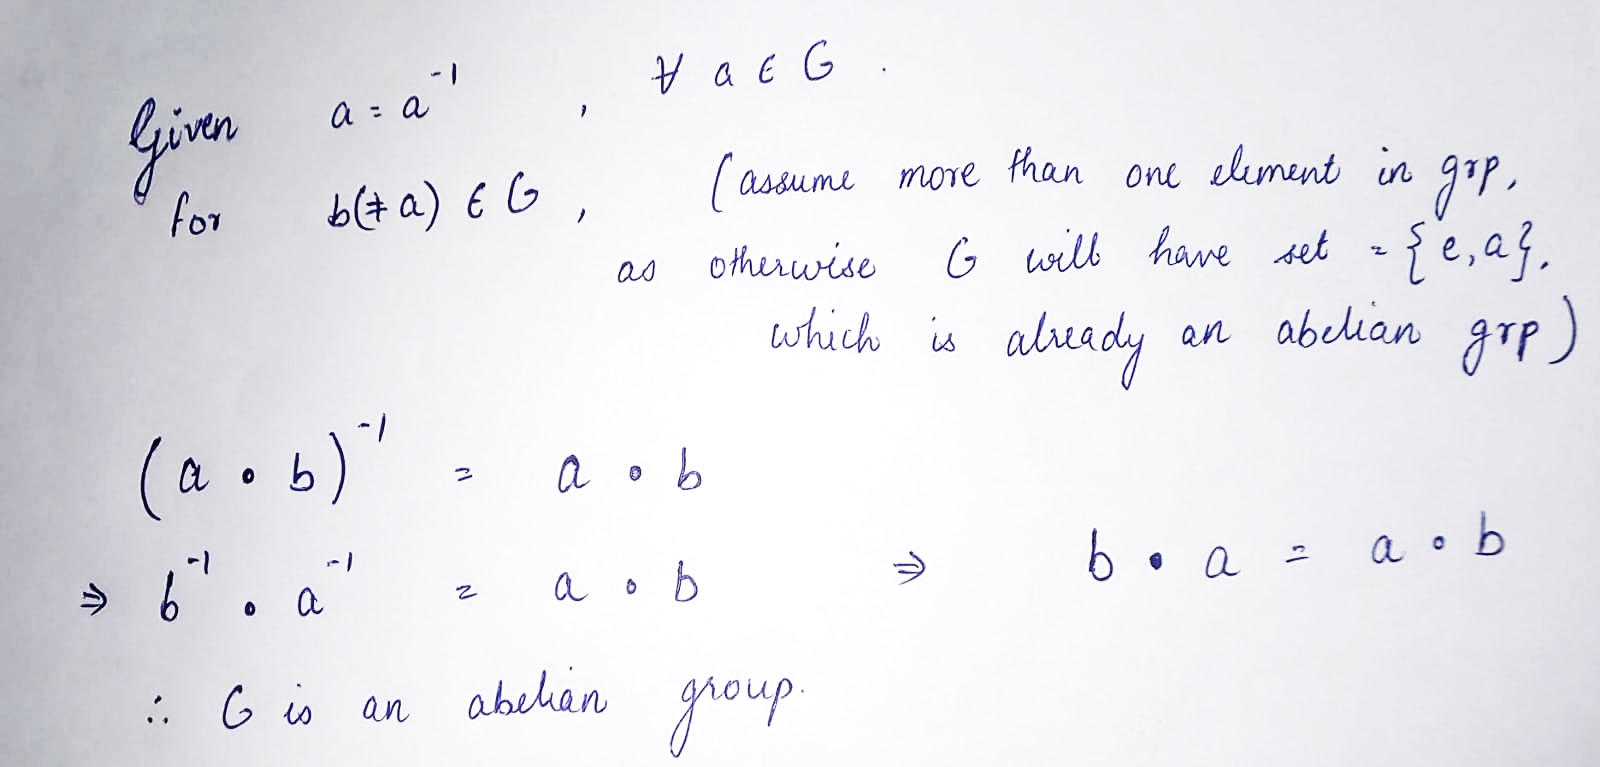 Given a = a⁻¹ , ∀ a ∈ G .
for b(≠ a) ∈ G , (assume more than one element in grp,
as otherwise G will have set = {e, a},
which is already an abelian grp)
(a ∘ b)⁻¹ = a ∘ b
⇒ b⁻¹ ∘ a⁻¹ = a ∘ b ⇒ b ∘ a = a ∘ b
∴ G is an abelian group.